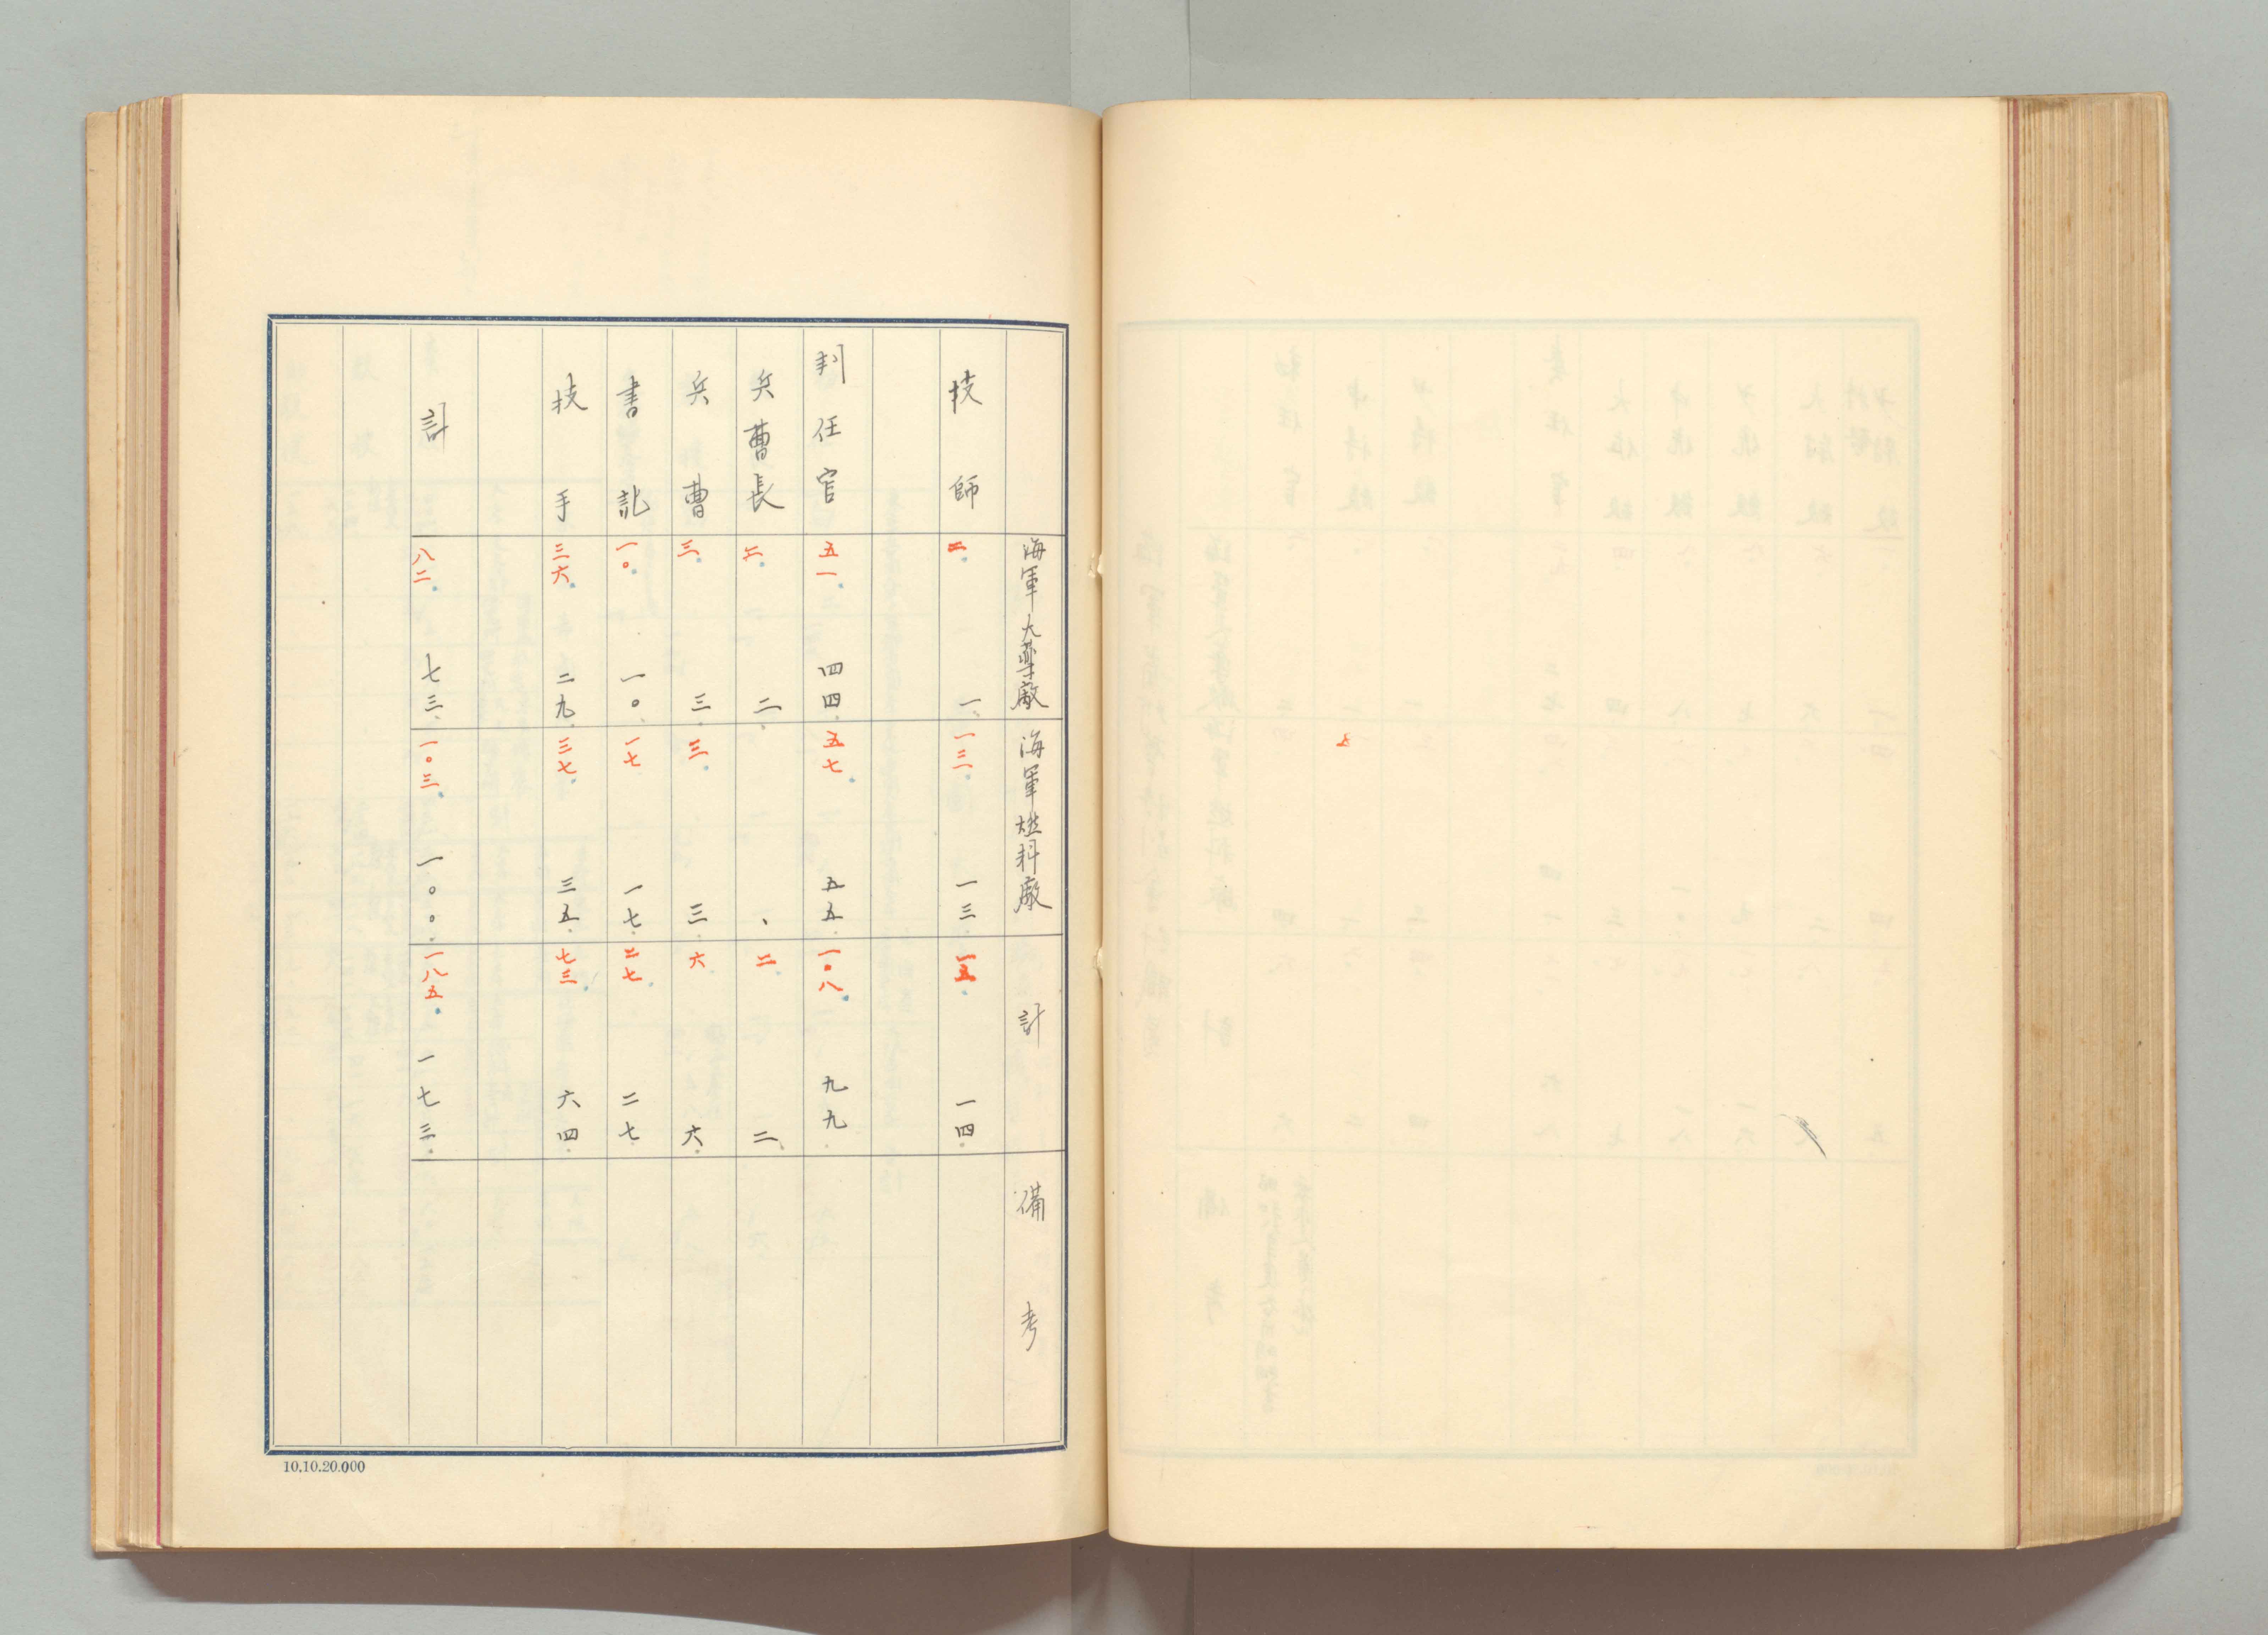 海軍火薬廠 海軍燃料廠 計 備考
技師 二 一 一三 一三 一五 一四
判任官 五一 四四 五七 五五 一〇八 九九
兵曹長 二 二 、 二 二
兵曹 三 三 三 三 六 六
書記 一〇 一〇 一七 一七 二七 二七
技手 三六 二九 三七 三五 七三 六四
計 八二 七三 一〇三 一〇〇 一八五 一七三
10.10.20.000